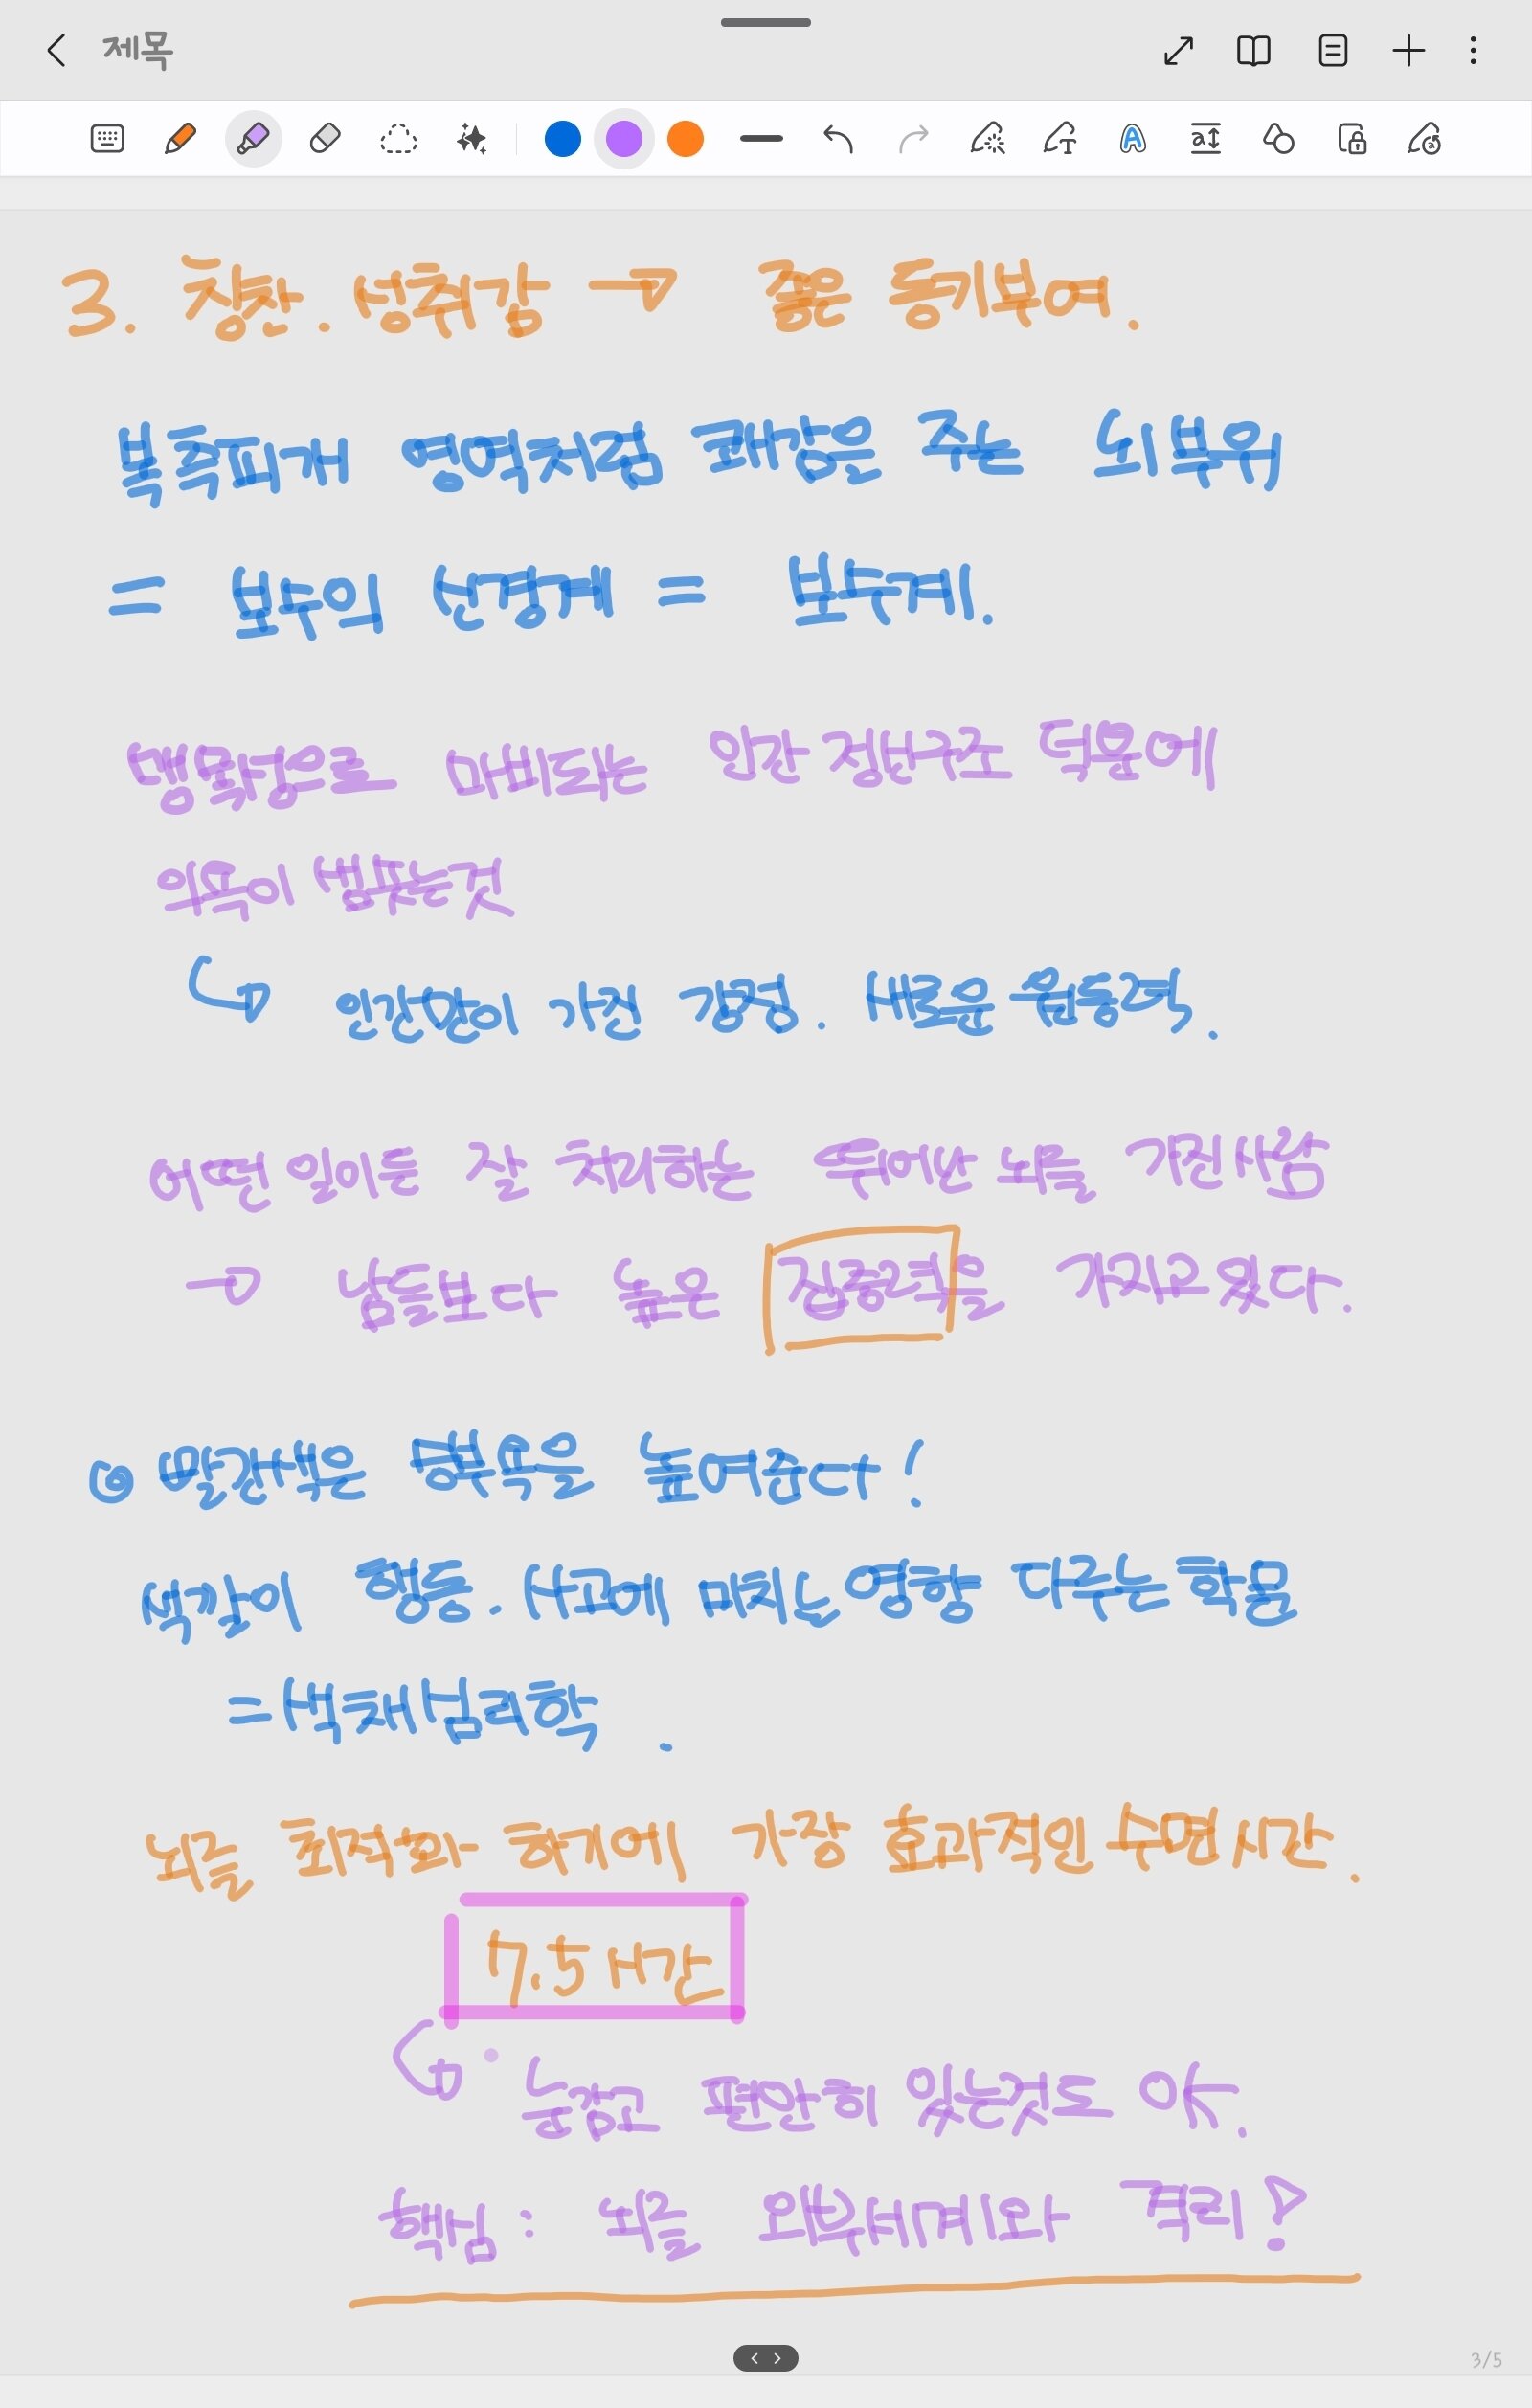 제목
3. 칭찬. 성취감 → 좋은 동기부여.
북측피개 영역처럼 쾌감을 주는 뇌부위
= 보수의 신경계 = 보수계.
맹목적으로 마비되는 인간 정신구조 덕분에
의욕이 샘솟는것
↳ 인간만이 가진 감정. 새로운 원동력.
어떤 일이든 잘 처리하는 뛰어난 뇌를 가진사람
→ 남들보다 높은 집중력을 가지고 있다.
◎ 빨간색은 능력을 높여준다!
색깔이 행동. 사고에 미치는 영향 다루는 학문
= 색채심리학.
뇌를 쾌적화 하기에 가장 효과적인 수면시간.
7.5시간
↳ 눈감고 편안히 있는것도 OK.
핵심 : 뇌를 외부세계와 격리!
3/5